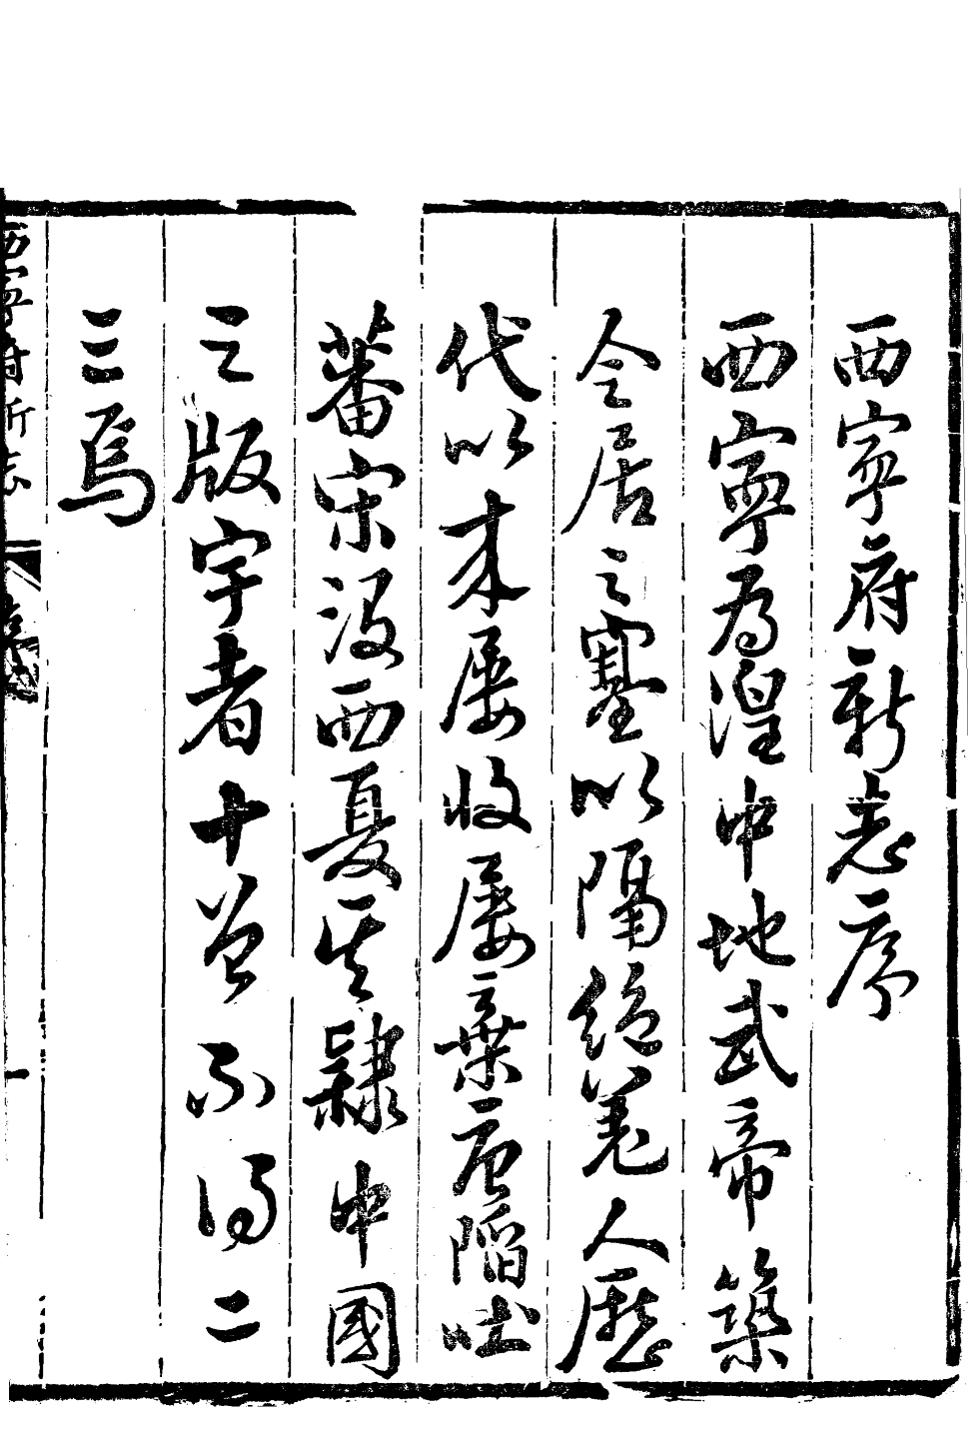 西寧府新志序
西寧為湟中地武帝築
令居之塞以隔絶羌人歷
代以來屢收屢棄唐陷吐
蕃宋没西夏其隸中國
之版宇者十曾不得二
三焉
西寧府新志
序
一